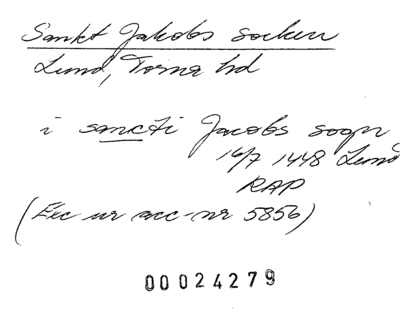 Sankt Jakobs socken
Lund, Torna hd
i sancti Jacobs sogn
16/7 1448 Lund
RAP
(Exc ur acc-nr 5856)
00024279